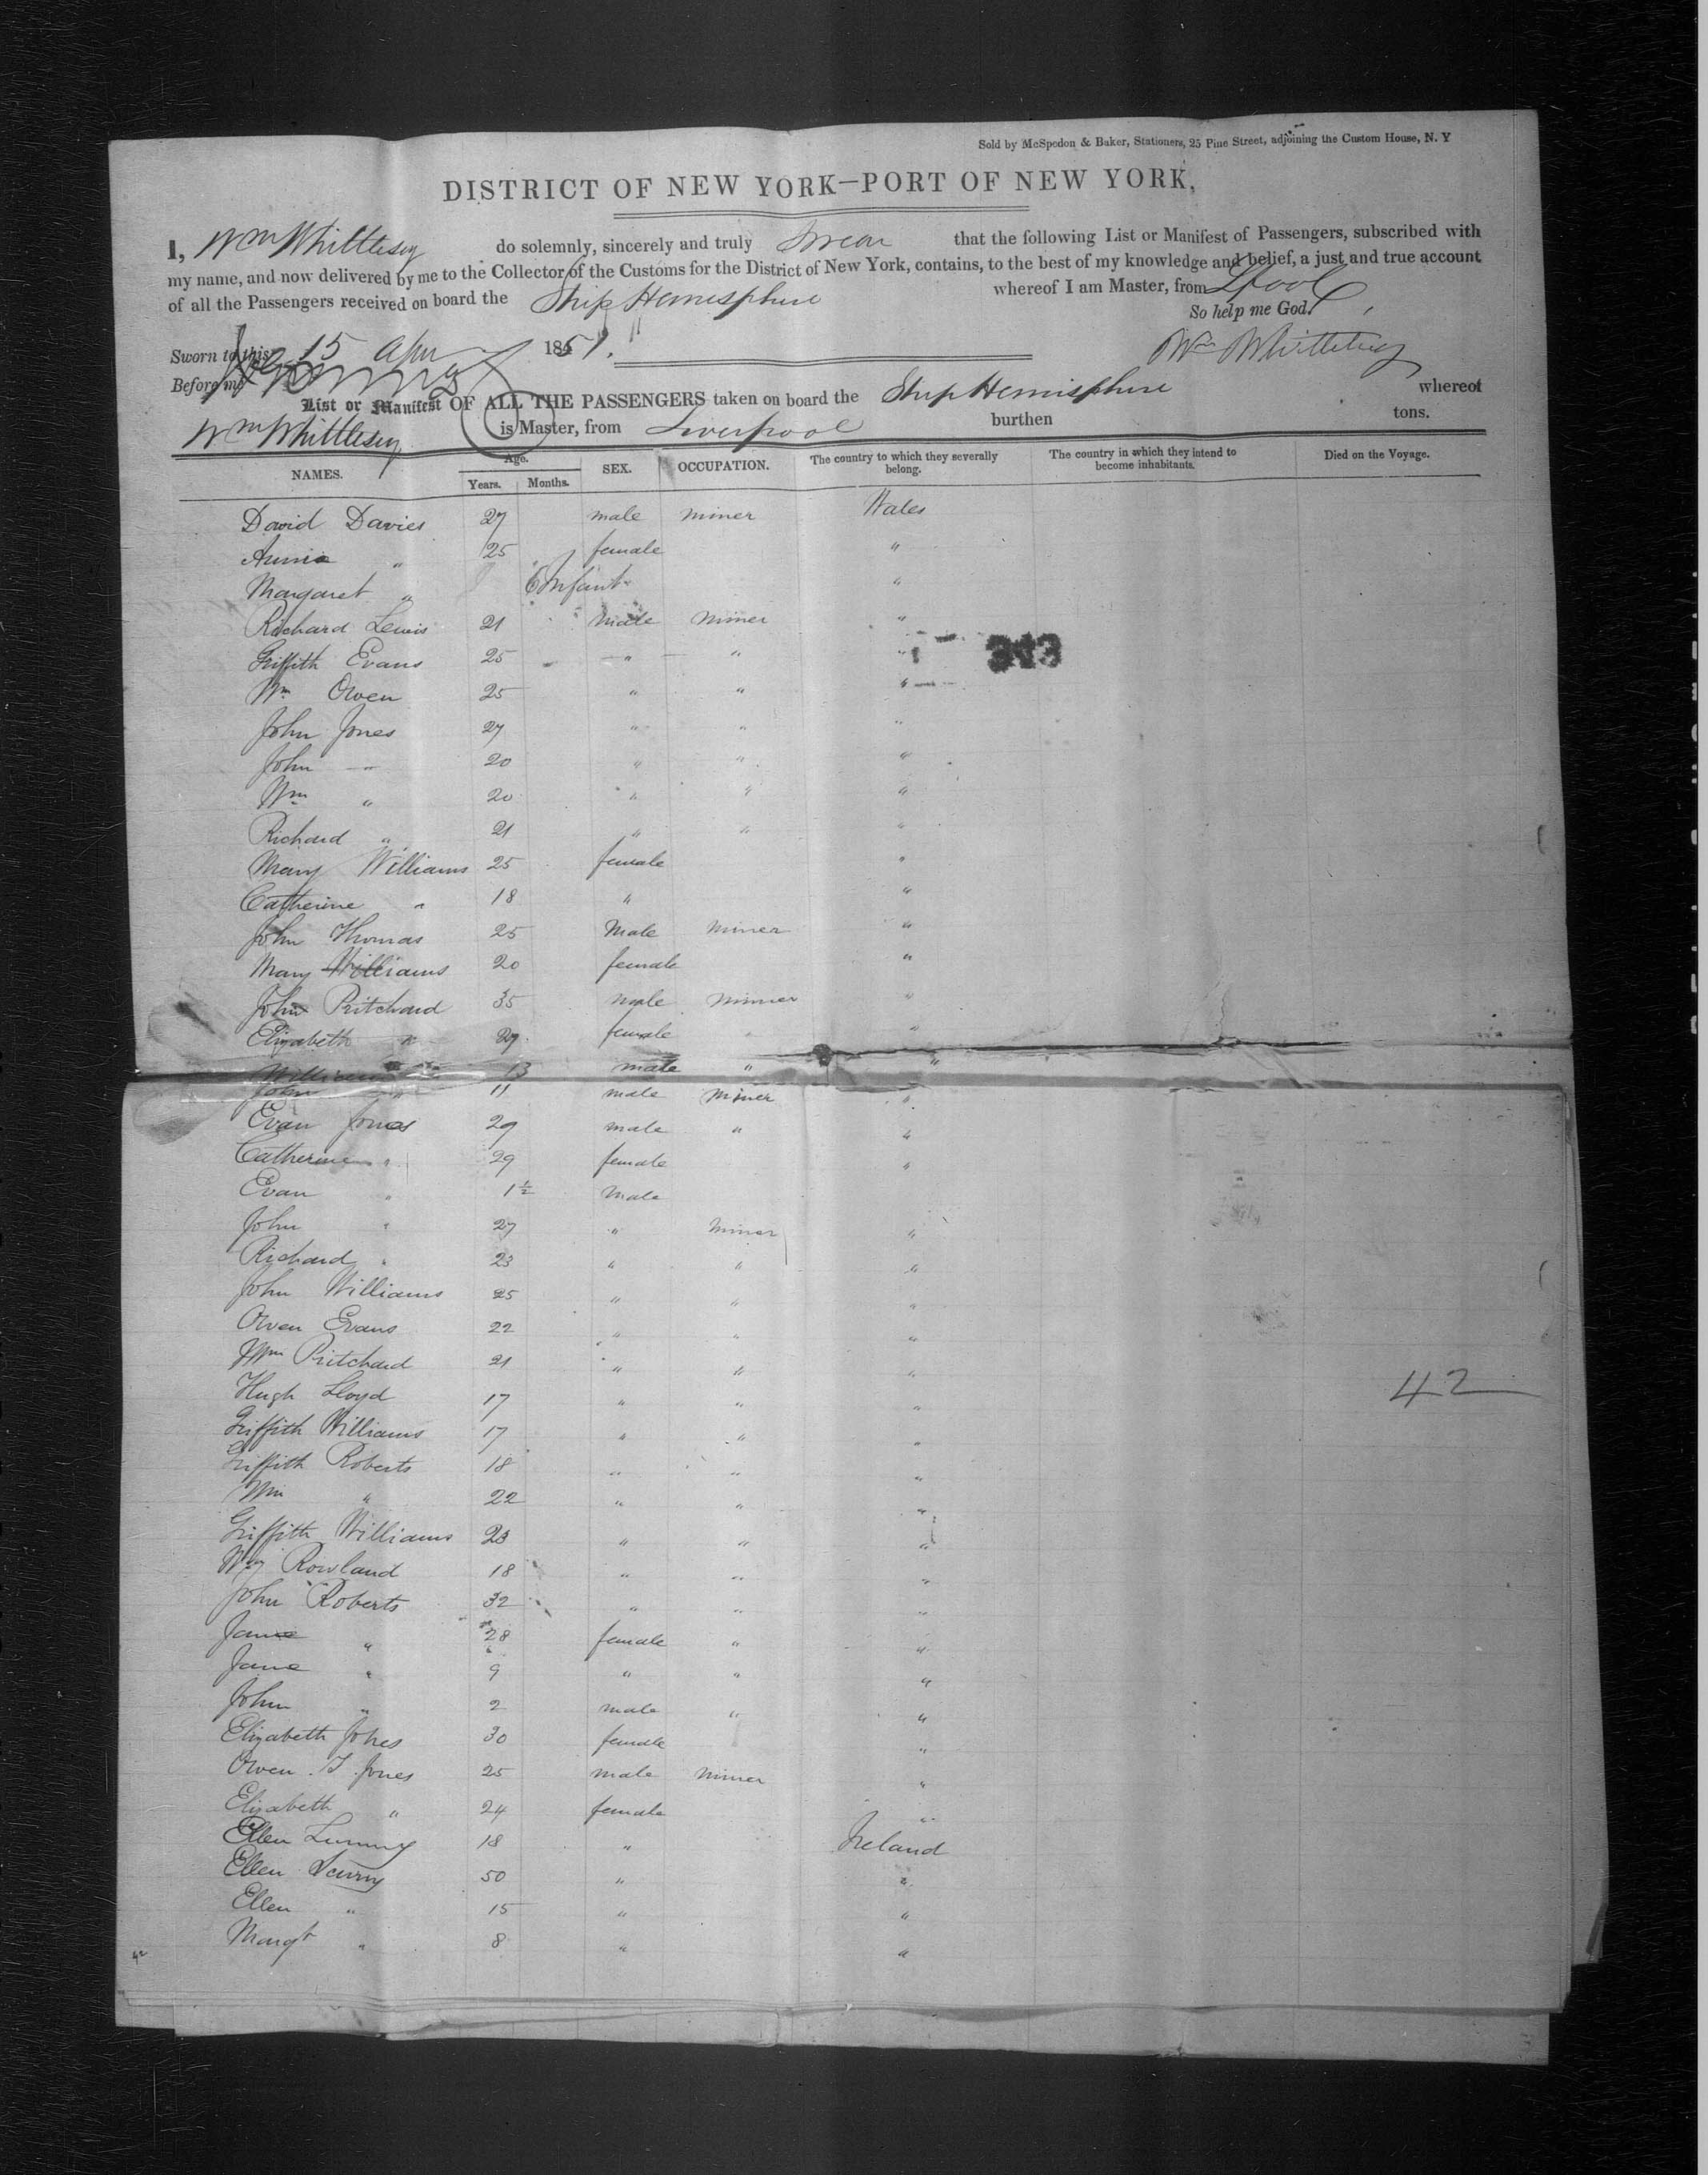 Sold by McSpedon & Baker, Stationers, 25 Pine Street, adjoining the Custom House, N. Y
DISTRICT OF NEW YORK—PORT OF NEW YORK,
I, Wm Whittlesey do solemnly, sincerely and truly Swear that the following List or Manifest of Passengers, subscribed with
my name, and now delivered by me to the Collector of the Customs for the District of New York, contains, to the best of my knowledge and belief, a just and true account
of all the Passengers received on board the Ship Hemisphere whereof I am Master, from Lpool
So help me God.
Sworn to this 15 Apr 1851. Wm Whittlesey
Before me
List or Manifest OF ALL THE PASSENGERS taken on board the Ship Hemisphere whereof
Wm Whittlesey is Master, from Liverpool burthen tons.
NAMES. Age. Years. Months. SEX. OCCUPATION. The country to which they severally belong. The country in which they intend to become inhabitants. Died on the Voyage.
David Davies 27 male miner Wales
Annie " 25 female "
Margaret " 6 Infant "
Richard Lewis 21 Male Miner "
Griffith Evans 25 " " " 343
Wm Owen 25 " " "
John Jones 27 " " "
John " 20 " " "
Wm " 20 " " "
Richard " 21 " " "
Mary Williams 25 female "
Catherine " 18 " "
John Thomas 25 Male Miner "
Mary Williams 20 female "
John Pritchard 35 male Minner "
Elizabeth " 27 female "
William " 13 male " "
John " 11 male Miner "
Evan Jones 29 male " "
Catherine " 29 female "
Evan " 1½ Male
John " 27 " Miner "
Richard " 23 " " "
John Williams 25 " " "
Owen Evans 22 " " "
Wm Pritchard 21 " " "
Hugh Lloyd 17 " " " 42
Griffith Williams 17 " " "
Griffith Roberts 18 " " "
Wm " 22 " " "
Griffith Williams 23 " " "
Wm Rowland 18 " " "
John Roberts 32 " " "
Jane " 28 female " "
Jane " 9 " " "
John " 2 male " "
Elizabeth Jones 30 female "
Owen T Jones 25 male Miner "
Elizabeth " 24 female "
Ellen 18 " Ireland
Ellen 50 " "
Ellen " 15 " "
Margt " 8 " "
42